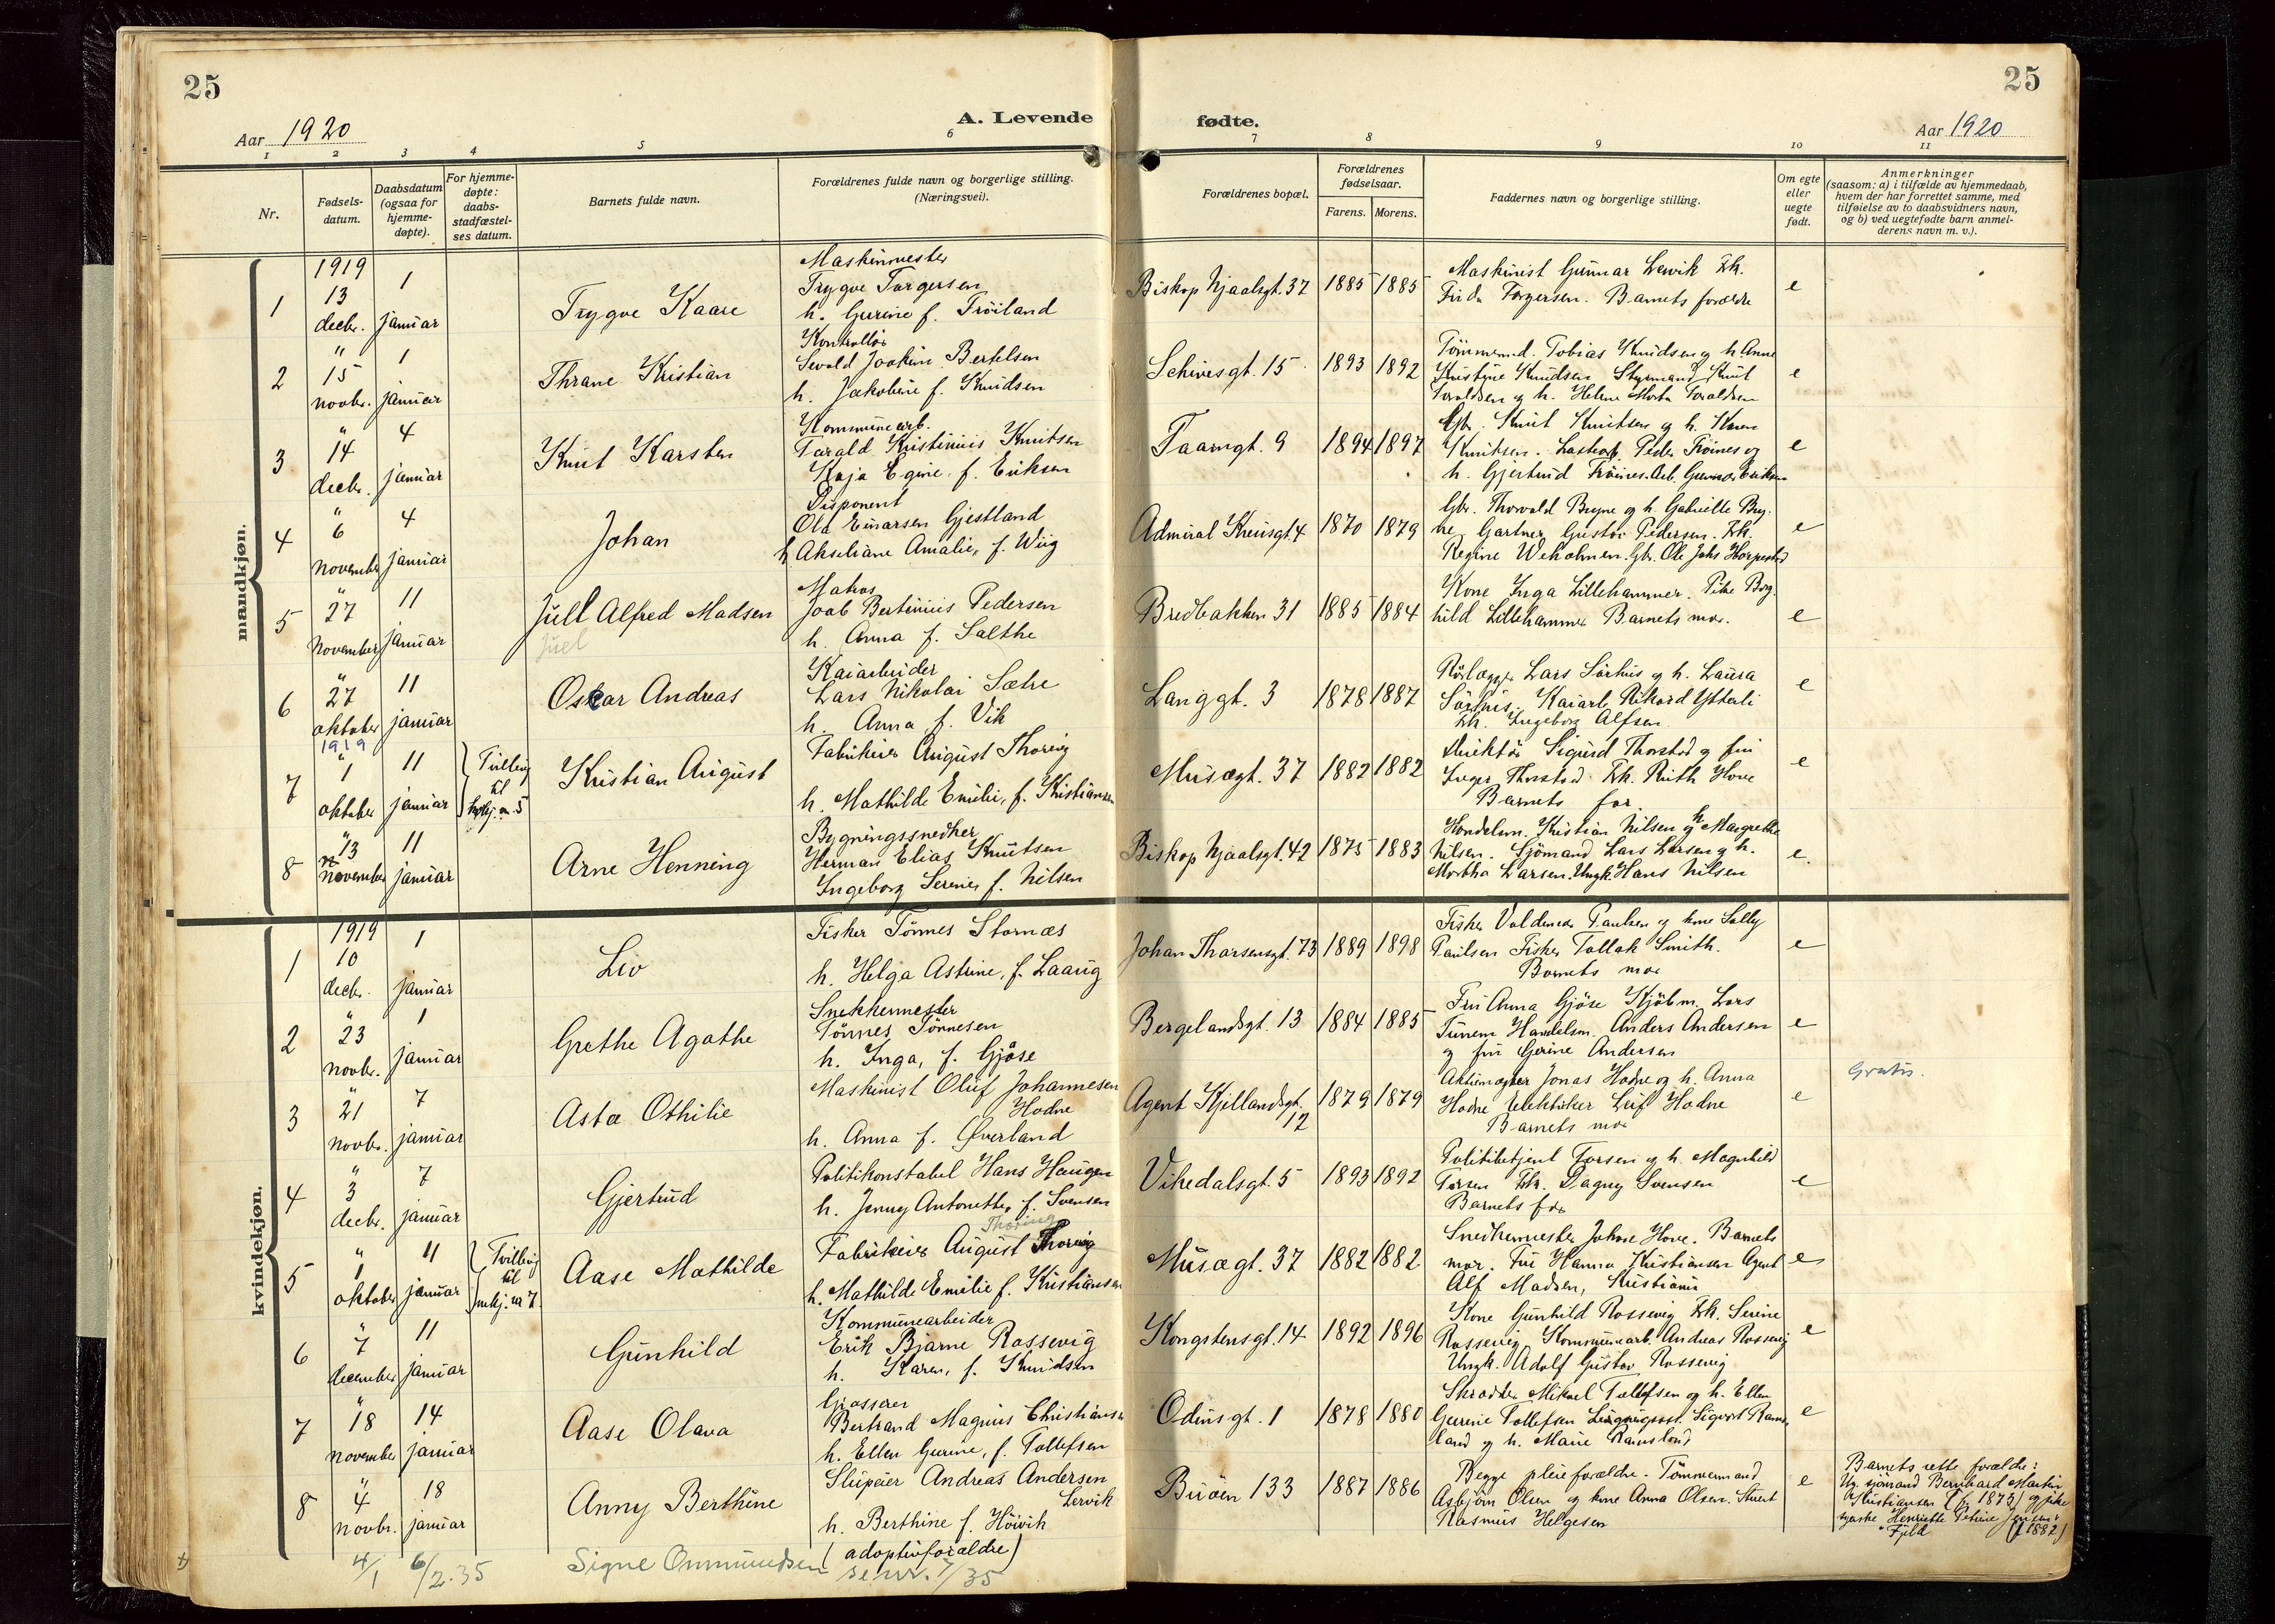 25
25
Aar 1920
A. Levende fødte.
Aar 1920
1 2 3 4 5 6 7 8 9 10 11
Nr.
Fødsels-
datum.
Daabsdatum
(ogsaa for
hjemme-
døpte).
For hjemme-
døpte:
daabs-
stadfæstel-
ses datum.
Barnets fulde navn.
Forældrenes fulde navn og borgerlige stilling.
(Næringsvei).
Forældrenes bopæl.
Forældrenes
fødselsaar.
Farens. Morens.
Faddernes navn og borgerlige stilling.
Om egte
eller
uegte
født.
Anmerkninger
(saasom: a) i tilfælde av hjemmedaab,
hvem der har forrettet samme, med
tilføielse av to daabsvidners navn,
og b) ved uegtefødte barn anmel-
derens navn m. v.).
mandkjøn.
1
1919
13
decbr.
1
januar
Trygve Kaare
Maskinmester
Trygve Torgersen
h. Gurine f. Tröiland
Biskop Njaalsgt. 37
1885 1885
Maskinist Gunnar Lervik Frk.
Frida Torgersen. Barnets forældre
e
2
"
15
novbr.
1
januar
Thrane Kristian
Kontrollör
Sevald Joakim Bertelsen
h. Jakobine f. Knudsen
Schivesgt. 15
1893 1892
Tömmermd. Tobias Knudsen og h. Anne
Kristine Knudsen Styrmand Knut
Toraldsen og h. Helene Marta Toraldsen
e
3
"
14
decbr.
4
januar
Knut Karsten
Kommunearb.
Tarald Kristinius Knutsen
Kaja Egine f. Eriksen
Taarngt. 9
1894 1897
Gbr. Knut Knutsen og h. Karen
Knutsen. Lastearb. Peder Tröines og
h. Gjertrud Tröines. Arb. Gunnar Eriksen
e
4
"
6
november
4
januar
Johan
Disponent
Ola Einarsen Gjestland
h Akseliane Amalie, f. Wiig
Admiral Kreusgt. 4
1870 1879
Gbr. Thorvald Bryne og h. Gabrielle Bry-
ne Gartner Gustav Pedersen. Frk.
Regine Weholmen. Gbr. Ole Johs Horpestad
e
5
"
27
November
11
januar
Juell Alfred Madsen
Juel
Matros
Joab Bertinius Pedersen
h. Anna f. Salthe
Bredbakken 31
1885 1884
Kone Inga Lillehammer. Pike Borg-
hild Lillehammer Barnets mor.
e
6
"
27
oktober
1919
11
januar
Oskar Andreas
Kaiarbeider
Lars Nikolai Sætre
h. Anna f. Vik
Langgt. 3
1878 1887
Rörlægger Lars Sörhus og h. Laura
Sörhus. Kaiarb. Rikard Ytterli
Frk. Ingeborg Alfsen
e
7
"
1
oktober
11
januar
Tvilling
til
kvkj. nr. 5
Kristian August
Fabrikeier August Thoring
h. Mathilde Emilie, f. Kristiansen
Musægt. 37
1882 1882
Direktör Sigurd Thorstad og fru
Inger Thorstad Frk. Ruth Hove
Barnets far
e
8
"
13
november
11
januar
Arne Henning
Bygningssnedker
Herman Elias Knutsen
Ingeborg Serine f. Nilsen
Biskop Njaalsgt. 42
1875 1883
Handelsm. Kristian Nilsen og h Margrethe
Nilsen. Sjömand Lars Larsen og h.
Martha Larsen. Ungk. Hans Nilsen
e.
kvindekjøn.
1
1919
10
decbr.
1
januar
Liv
Fisker Tönnes Stornæs
h. Helga Astrine, f. Laaug
Johan Thorsensgt. 73
1889 1898
Fisker Valdemar Paulsen og kone Sally
Paulsen Fisker Tollak Smith.
Barnets mor
e
2
"
23
novbr.
1
januar
Grethe Agathe
Snekkermester
Tönnes Tönnesen
h. Inga, f. Gjöse
Bergelandsgt. 13
1884 1885
Fru Anna Gjöse Kjöbm. Lars
Tunem Handelsm. Anders Andersen
og fru Gerine Andersen
e
3
"
21
novbr.
7
januar
Asta Othilie
Maskinist Oluf Johannesen
Hodne
h. Anna f. Øverland
Agent Kjellandsgt.
12
1879 1879
Jonas Hodne og h. Anna
Hodne Elektriker Leif Hodne
Barnets mor
e
Gratis.
4
"
3
decbr.
7
januar
Gjertrud
Politikonstabel Hans Haugen
h. Jenny Antonette, f. Svensen
Vikedalsgt. 5
1893 1892
Politibetjent Torsen og h. Magnhild
Torsen Frk. Dagny Svensen
Barnets far
e
5
"
1
oktober
11
januar
Tvilling
til
mkj. nr 7.
Aase Mathilde
Thoring
Fabrikeier August Thoring
h. Mathilde Emilie f. Kristiansen
Musægt. 37
1882 1882
Snedkermester Johan Hove. Barnets
mor. Fru Hanna Kristiansen Agent
Alf Madsen, Kristiania
e
6
"
7
december
11
januar
Gunhild
Kommunearbeider
Erik Bjarne Rossevig
h. Karen, f. Knudsen
Kongstensgt. 14
1892 1896
Kone Gunhild Rossevig Frk. Serine
Rossevig Kommunearb. Andreas Rossevig
Ungk. Adolf Gustav Rossevig
e
7
"
18
november
14
januar
Aase Olava
Grosserer
Bertrand Magnus Christiansen
h. Ellen Gurine, f. Tollefsen
Odinsgt. 1
1878 1880
Skrædder Mikael Tollefsen og h. Ellen
Gurine Tollefsen Sigvart Rams-
land og h. Marie Ramsland
e
8
"
4
novbr.
18
januar
Anny Berthine
Slipeier Andreas Andersen
Lervik
h. Berthine f. Höivik
(adoptivforældre)
Buöen 133
1887 1886
Begge pleieforældre. Tömmermand
Asbjörn Olsen og kone Anna Olsen. Stuert
Rasmus Helgesen
e
Barnets rette forældre:
Ug. sjömand Bernhard Martin
Kristiansen (f. 1873) og pike
Henriette Petrine Jensen
Fjeld (f 1882)
4/1 6/2.35
Signe Ommundsen
7/35